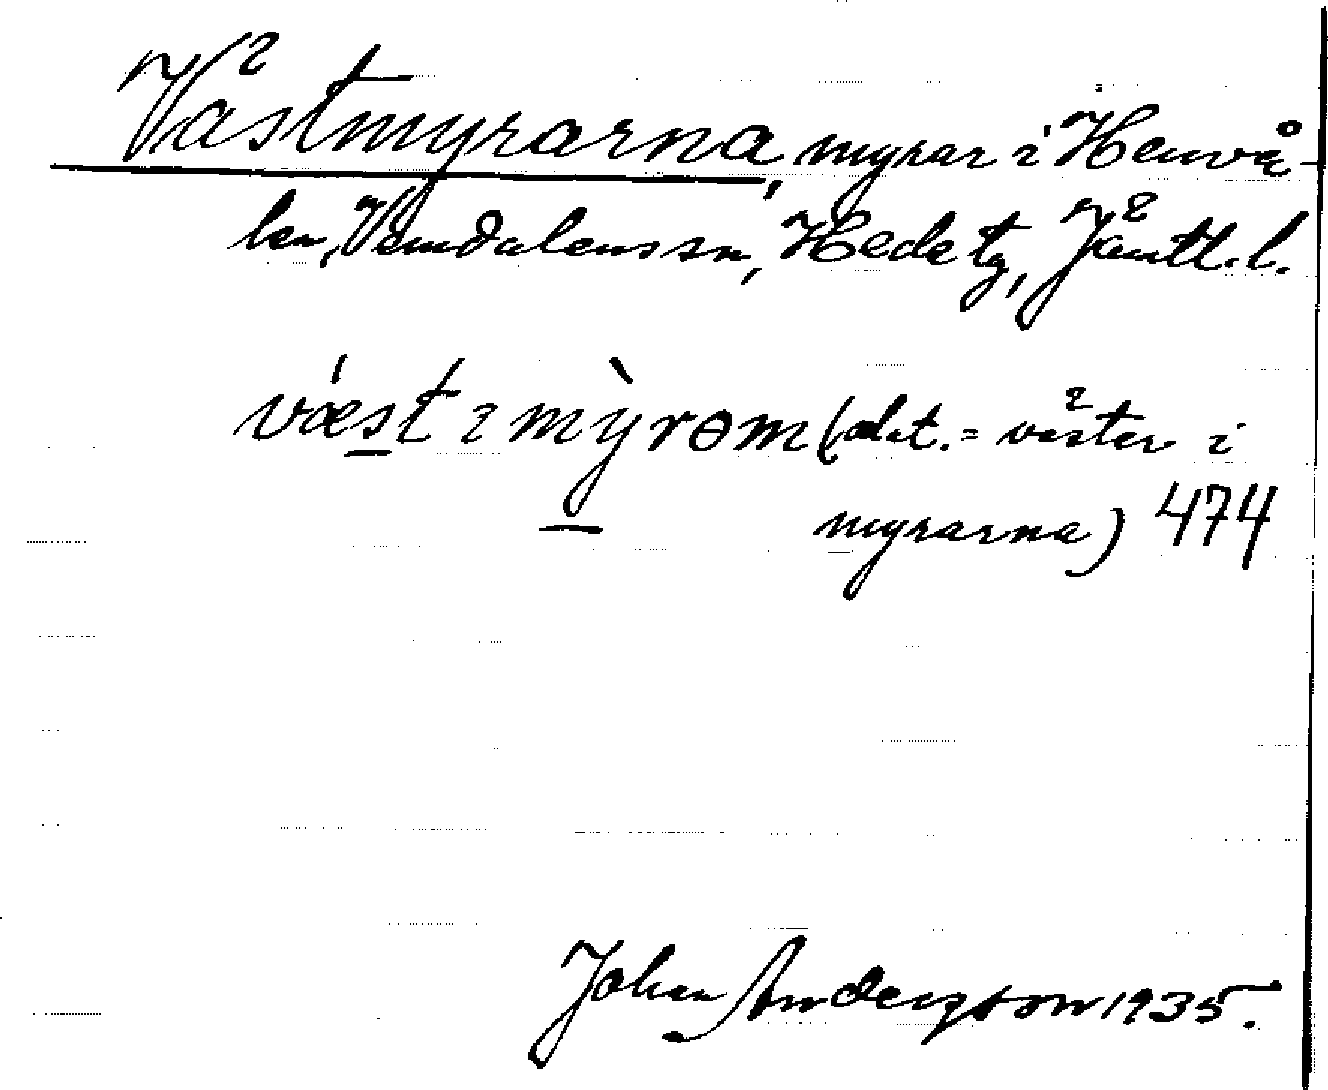 Västmyrarna, myrar i Henvå-
len, Vemdalens sn, Hede tg, Jämtl. l.
væ´st ı mỳrøm (dat. = väster i
myrarna) 474
Johan Anderzson 1935.